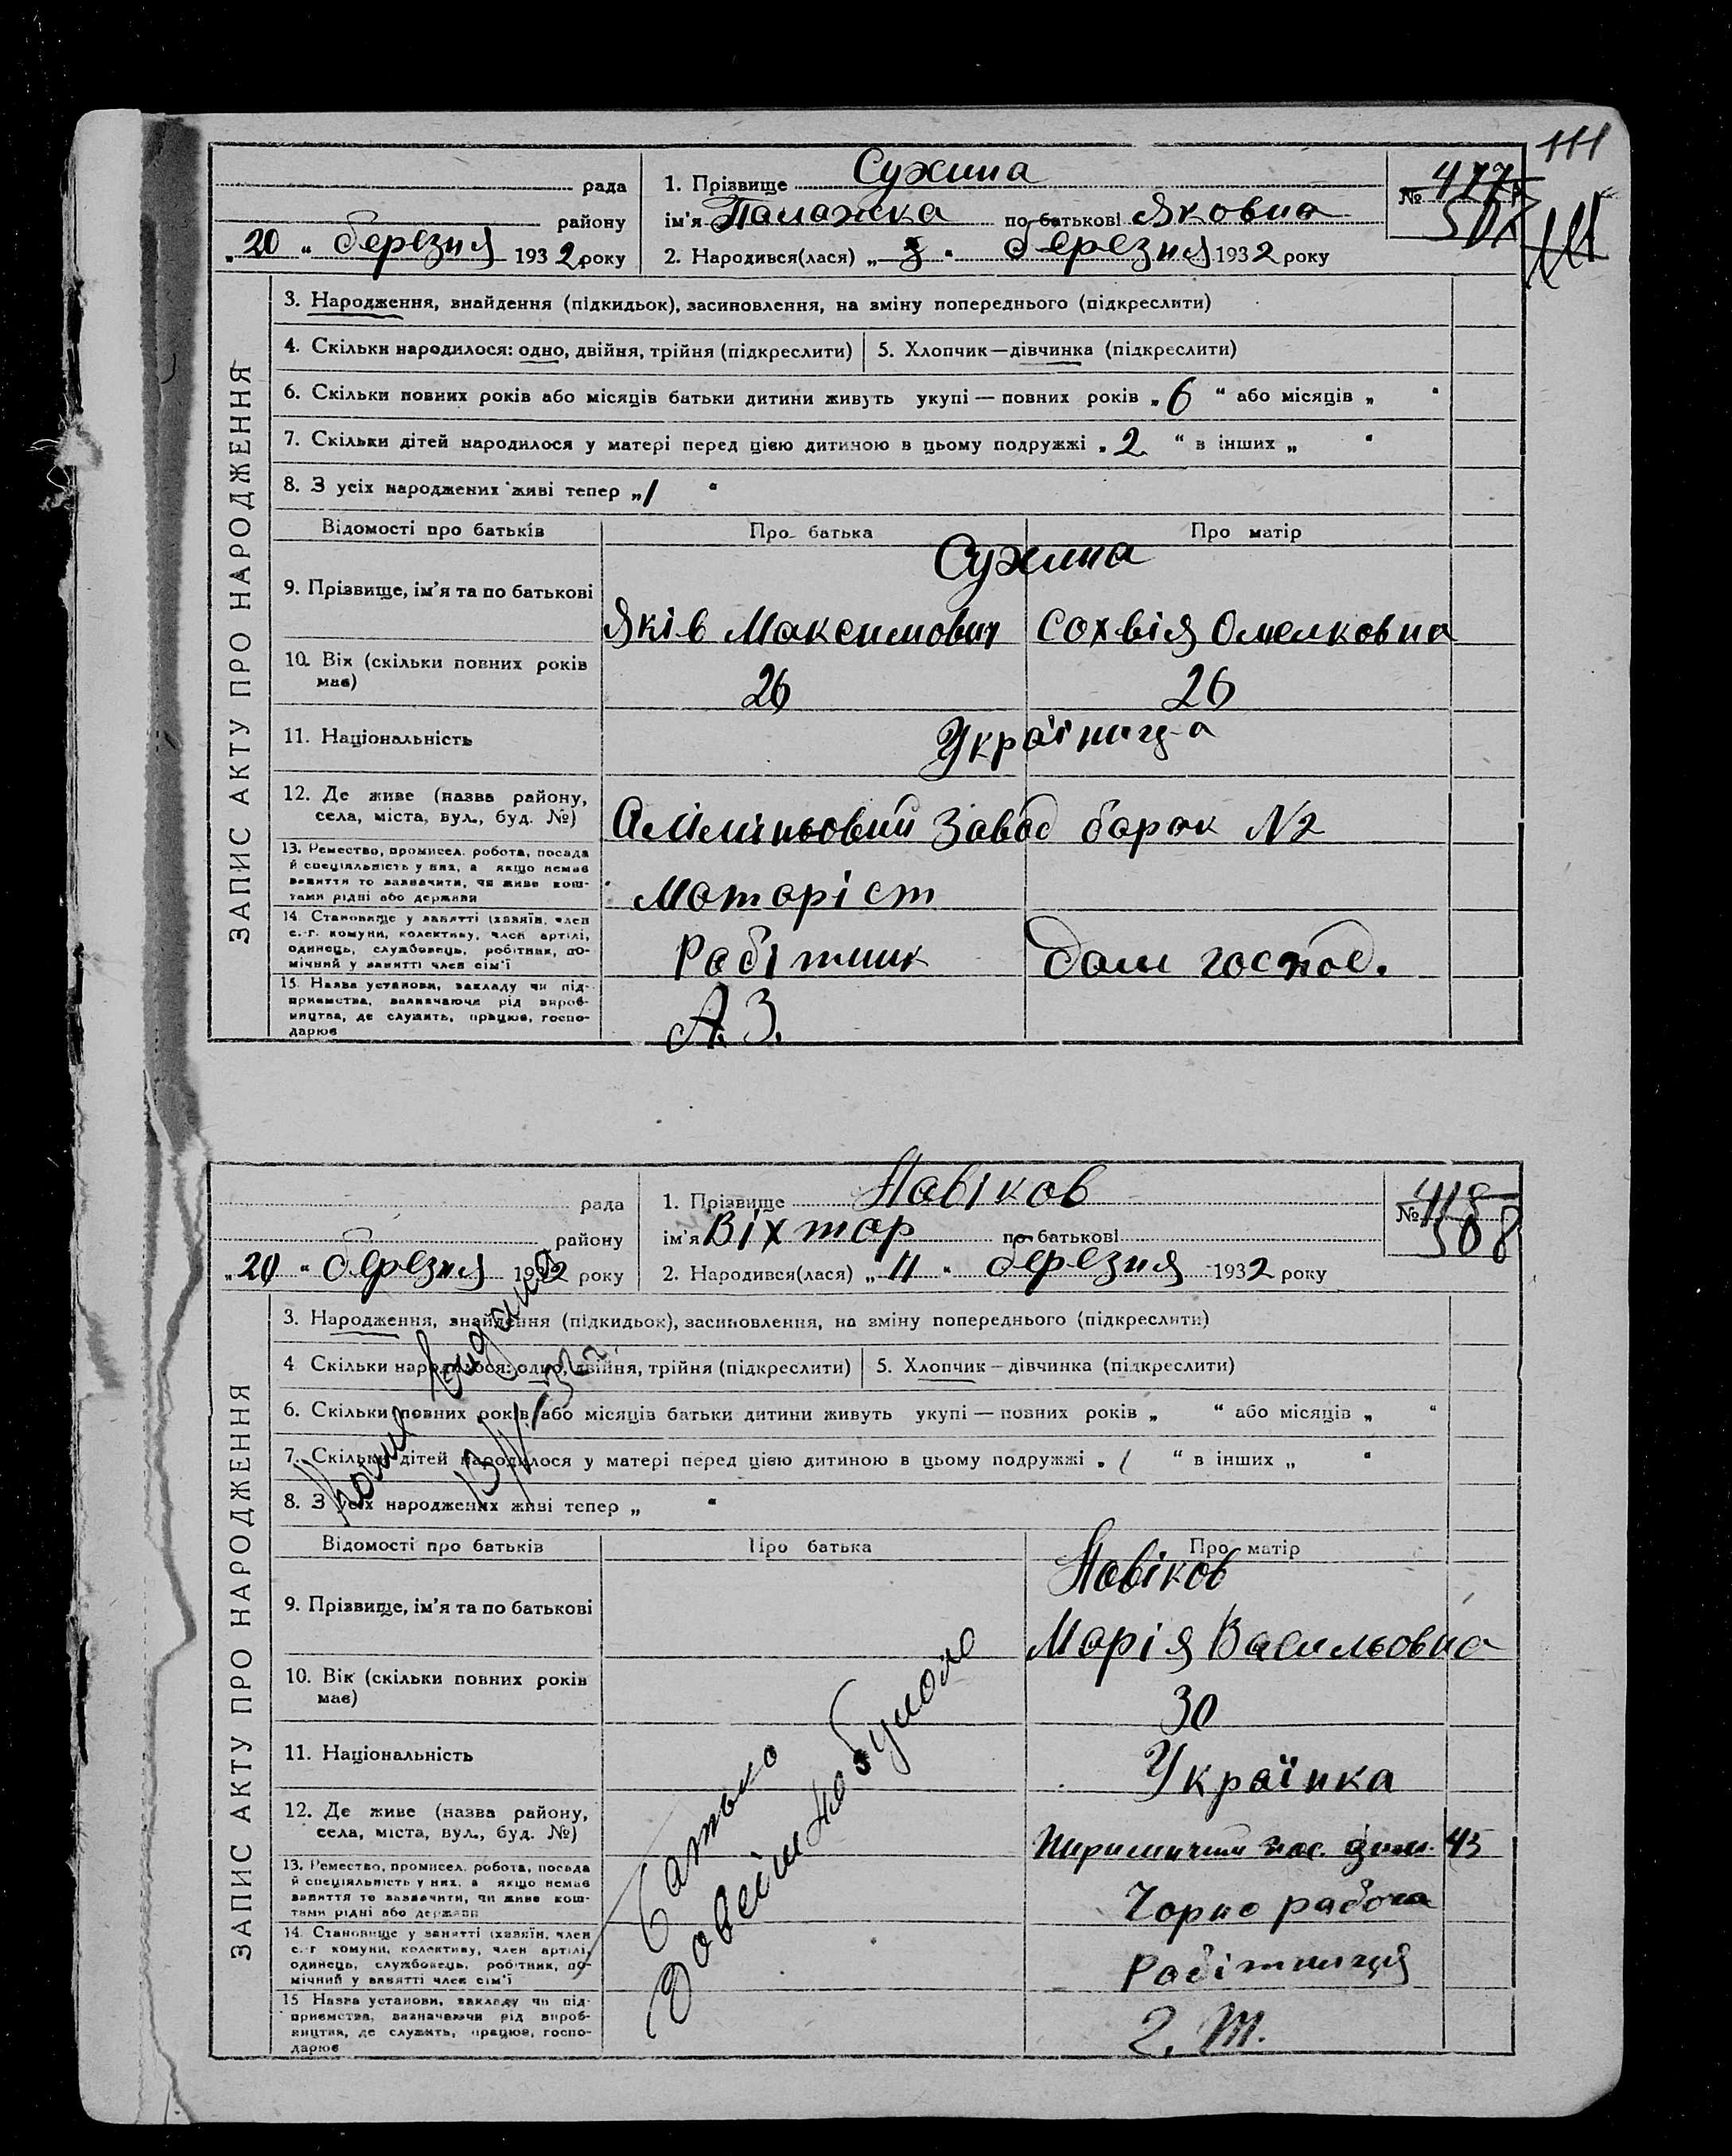 111
рада
1. Прізвище Сухина
№ 477
507
району
ім'я Палажка по батькові Яковна
111
„20" березня 1932 року
2. Народився(лася) „3" березня 1932 року
ЗАПИС АКТУ ПРО НАРОДЖЕННЯ
3. Народження, внайдення (підкидьок), засиновлення, на зміну попереднього (підкреслити)
4. Скільки народилося: одно, двійня, трійня (підкреслити)
5. Хлопчик—дівчинка (підкреслити)
6. Скільки повних років або місяців батьки дитини живуть укупі — повних років „6" або місяців „ "
7. Скільки дітей народилося у матері перед цією дитиною в цьому подружжі „2" в інших „ "
8. З усіх народжених живі тепер „1"
Відомості про батьків
Про батька
Про матір
Сухина
9. Прізвище, ім'я та по батькові
Яків Максимович
Сохвія Омелковна
10. Вік (скільки повних років має)
26
26
11. Національність
Українці
12. Де живе (назва району,
села, міста, вул., буд. №)
Аліміньовий завод барак №2
13. Ремество, промисел, робота, посада
й спеціяльність у них, а якщо немає
заняття то зазначити, чи живе кош-
тами рідні або держави
Маторіст
14. Становище у занятті (хазяїн, член
с.-г. комуни, колективу, член артілі,
одинець, службовець, робітник, по-
мічний у занятті член сім'ї
Рабітник
Дом господ.
15. Назва установи, закладу чи під-
приємства, зазначаючи рід вироб-
ництва, де служить, працює, госпо-
дарює
А.З.
рада
1. Прізвище Навіков
№ 418
508
району
ім'я Віхтар по батькові
„20" березня 1932 року
2. Народився(лася) „11" березня 1932 року
ЗАПИС АКТУ ПРО НАРОДЖЕННЯ
3. Народження, знайдення (підкидьок), засиновлення, на зміну попереднього (підкреслити)
4 Скільки народилося: одно, двійня, трійня (підкреслити)
5. Хлопчик—дівчинка (підкреслити)
6. Скільки повних років або місяців батьки дитини живуть укупі — повних років „ " або місяців „ "
7. Скільки дітей народилося у матері перед цією дитиною в цьому подружжі „1" в інших „ "
8. З усіх народжених живі тепер „ "
Відомості про батьків
Про батька
Про матір
Навіков
9. Прізвище, ім'я та по батькові
Марія Васильовна
10. Вік (скільки повних років має)
30
11. Національність
Українка
12. Де живе (назва району,
села, міста, вул., буд. №)
пос. дом. 45
13. Ремество, промисел, робота, посада
й спеціяльність у них, а якщо немає
заняття то зазначити, чи живе кош-
тами рідні або держави
Чорно рабоча
14. Становище у занятті (хазяїн, член
с.-г комуни, колективу, член артілі,
одинець, службовець, робітник, по-
мічний у занятті член сім'ї
Рабітниця
15 Назва установи, закладу чи під-
приємства, зазначаючи рід вироб-
ництва, де служить, працює, госпо-
дарює
Батько